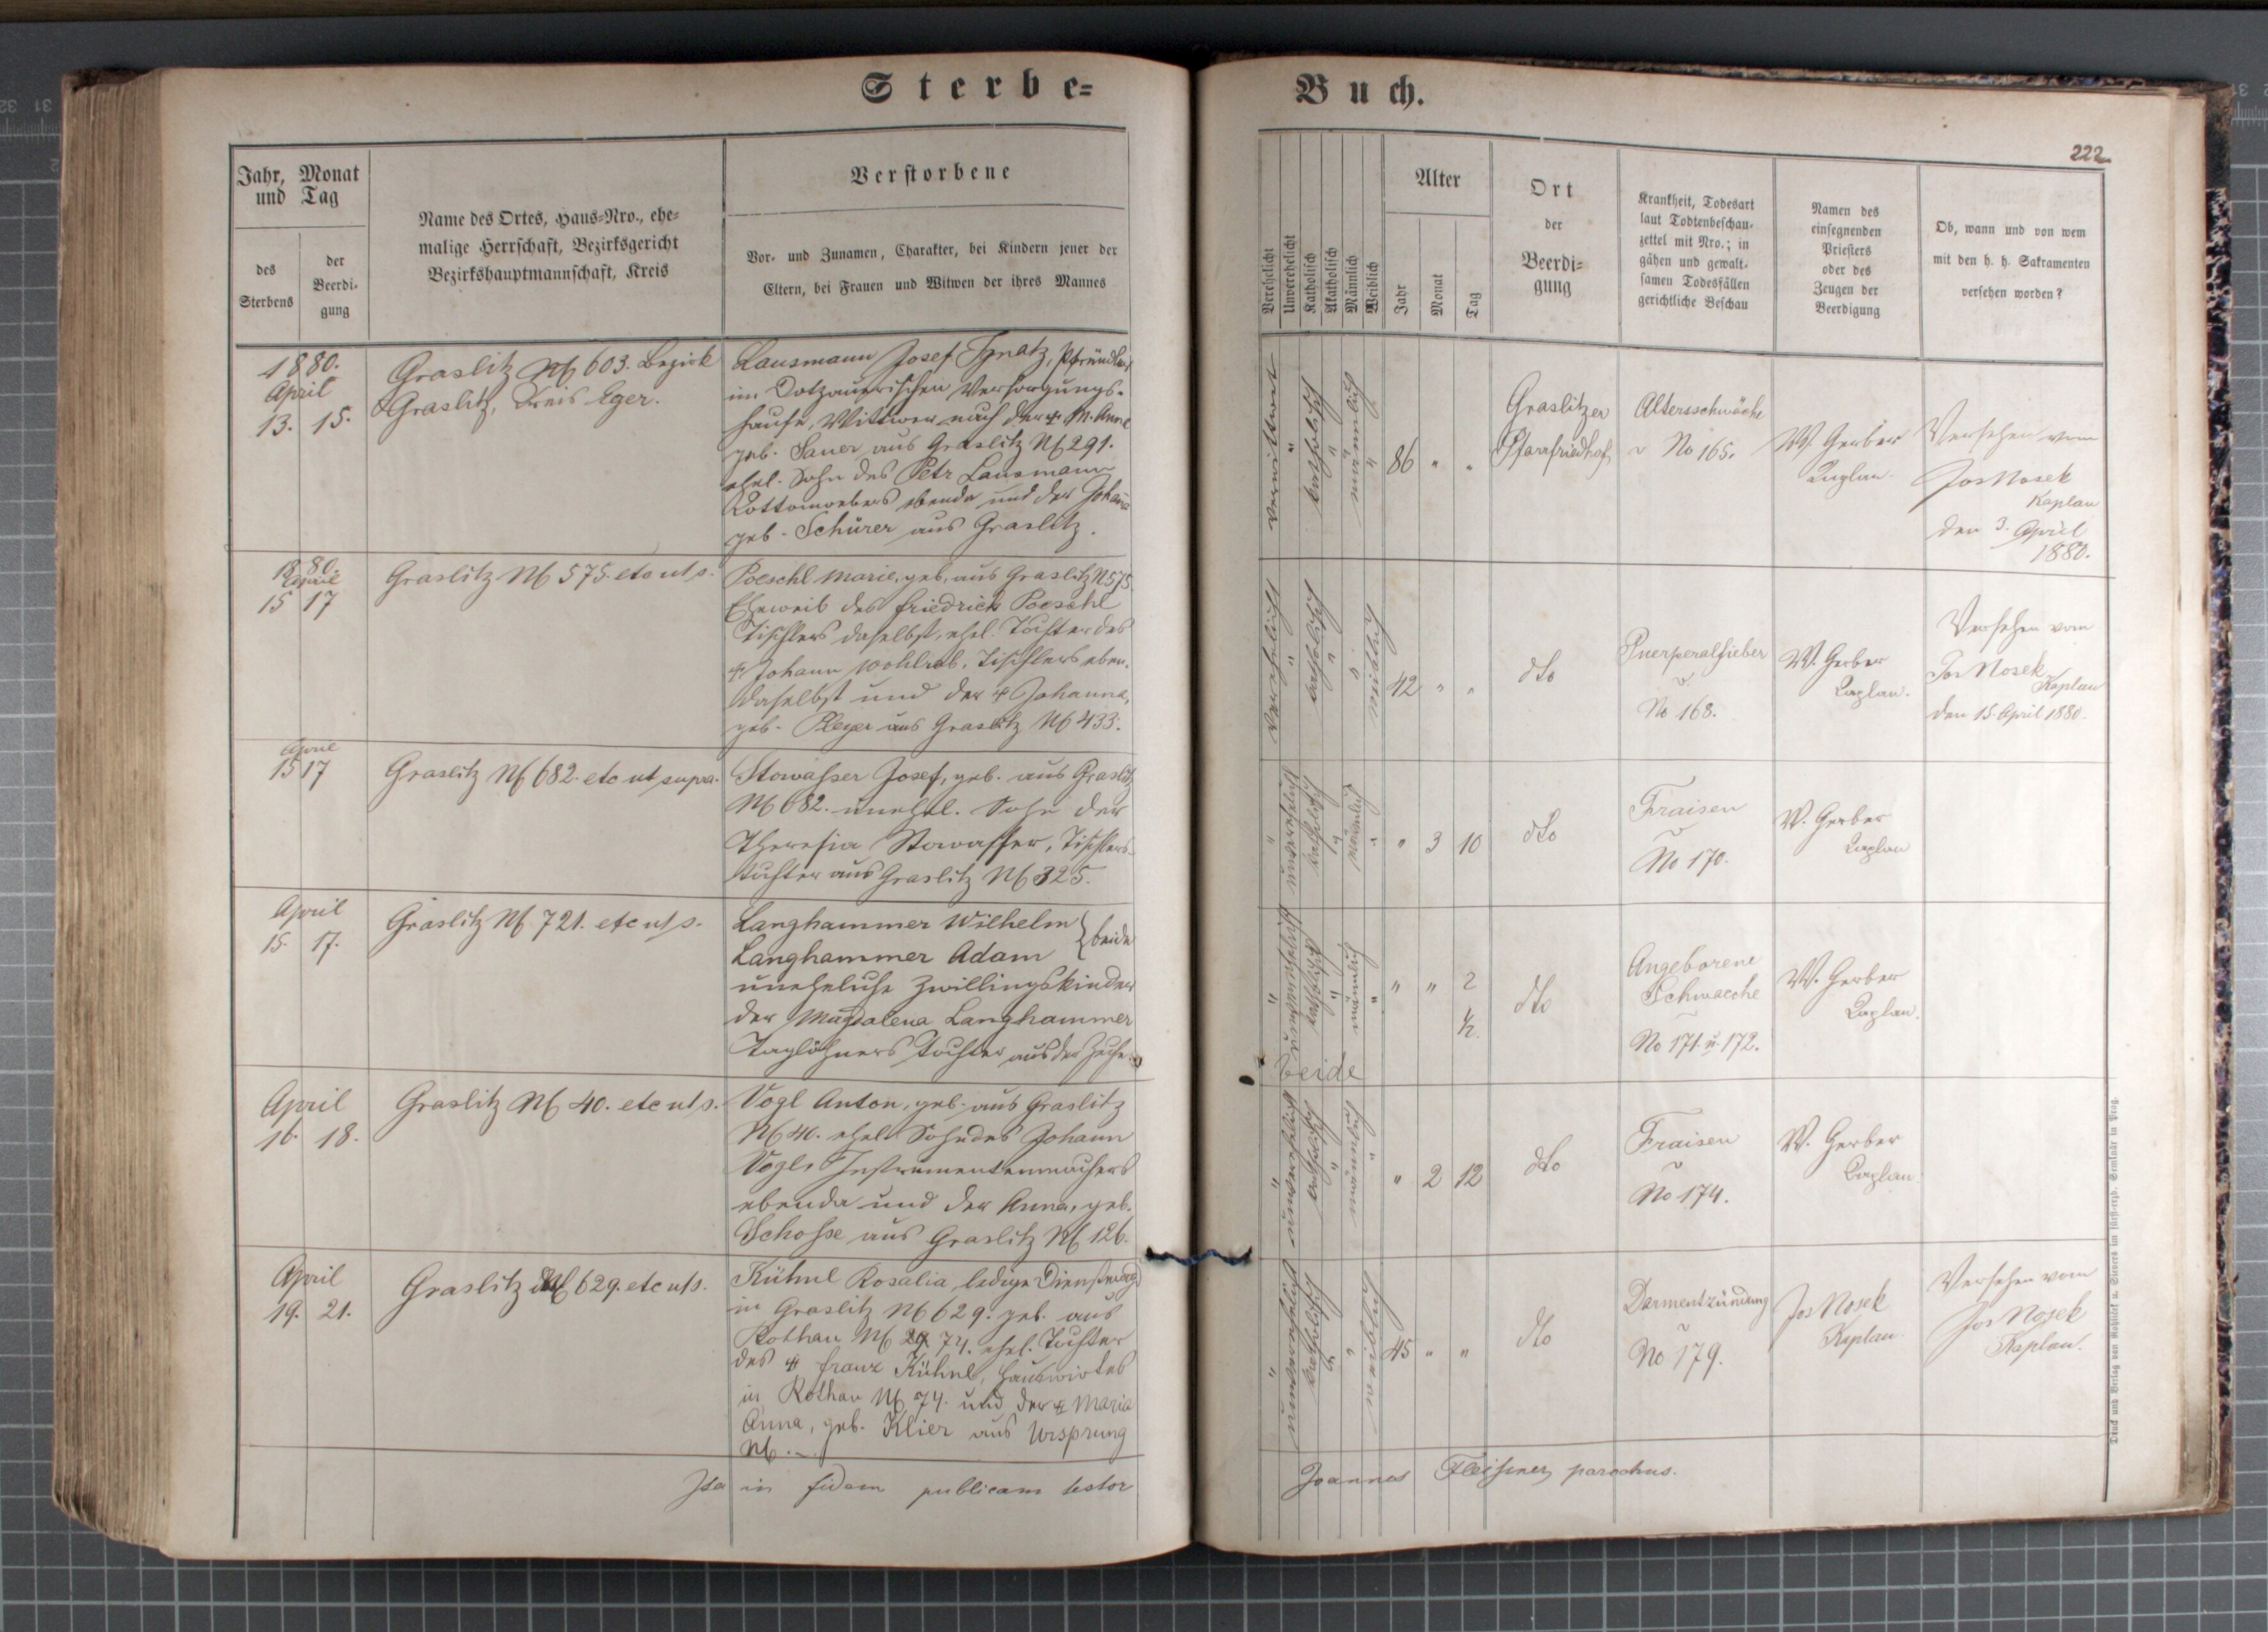 Sterbe-
Buch.
222
Jahr, Monat
und Tag
des
Sterbens
der
Beerdi-
gung
Name des Ortes, Haus-Nro., ehe-
malige Herrschaft, Bezirksgericht
Bezirkshauptmannschaft, Kreis
Verstorbene
Vor- und Zunamen, Charakter, bei Kindern jener der
Eltern, bei Frauen und Witwen der ihres Mannes
Verehelicht
Unverehelicht
Katholisch
Akatholisch
Männlich
Weiblich
Alter
Jahr
Monat
Tag
Ort
der
Beerdi-
gung
Krankheit, Todesart
laut Todtenbeschau-
zettel mit Nro.; in
gähen und gewalt-
samen Todesfällen
gerichtliche Beschau
Namen des
einsegnenden
Priesters
oder des
Zeugen der
Beerdigung
Ob, wann und von wem
mit den h. h. Sakramenten
versehen worden?
1880.
April
13. 15.
Graslitz N 603. Bezirk
Graslitz, Kreis Eger.
Lausmann Josef Ignatz, Pfründler
im Dotzauerischen Versorgungs-
hause, Wittwer nach der † M. Anna
geb. Sauer aus Graslitz N 291.
ehel. Sohn des Petr Lausmann
Kottonwebers ebenda und der Johana
geb. Schürer aus Graslitz.
verwittwet " katholisch " männlich "
86 " "
Graslitzer
Pfarrfriedhof
Altersschwäche
No 165.
W. Gerber
Kaplan.
Versehen vom
Jos Nosek
Kaplan
den 3. April
1880.
1880.
April
15 17
Graslitz N 575. etc ut s.
Poeschl Marie, geb. aus Graslitz N 575
Eheweib des Friedrich Poeschl
Tischlers daselbst, ehel. Tochter des
† Johann Wohlrab, Tischlers eben-
daselbst und der † Johanna,
geb. Pleyer aus Graslitz N 433.
verehelicht " katholisch " " weiblich
42 " "
dto
Puerperalfieber
No 168.
W. Gerber
Kaplan.
Versehen vom
Jos Nosek
Kaplan
den 15. April 1880.
April
15 17
Graslitz N 682. etc ut supra.
Stowasser Josef, geb. aus Graslitz
N 682. unehel. Sohn der
Theresia Stowasser, Tischlers-
tochter aus Graslitz N 325.
" unverehelicht katholisch " männlich "
" 3 10
dto
Fraisen
No 170.
W. Gerber
Kaplan
April
15. 17.
Graslitz N 721. etc ut s.
Langhammer Wilhelm } beide
Langhammer Adam
uneheliche Zwillingskinder
der Magdalena Langhammer
Taglöhners Tochter aus der
" unverehelicht katholisch " männlich "
beide
" " 2
½
dto
Angeborene
Schwaeche
No 171. u. 172.
W. Gerber
Kaplan.
April
16. 18.
Graslitz N 40. etc ut s.
Vogl Anton, geb. aus Graslitz
N 40. ehel. Sohn des Johann
Vogl, Instrumentenmachers
ebenda und der Anna, geb.
Schosse aus Graslitz N 126.
" unverehelicht katholisch " männlich "
" 2 12
dto
Fraisen
No 174.
W. Gerber
Kaplan.
April
19. 21.
Graslitz N 629. etc ut s.
Kühnl Rosalia, ledige Dienstmagd
in Graslitz N 629. geb. aus
Rothau N 74. ehel. Tochter
des † Franz Kühnl, Hauswirtes
in Rothau N 74. und der † Maria
Anna, geb. Klier aus Ursprung
N. –
" unverehelicht katholisch " " weiblich
45 " "
dto
Darmentzündung
No 179.
Jos Nosek
Kaplan
Versehen vom
Jos Nosek
Kaplan.
Ita in fidem publicam testor
Joannes Fleissner, parochus.